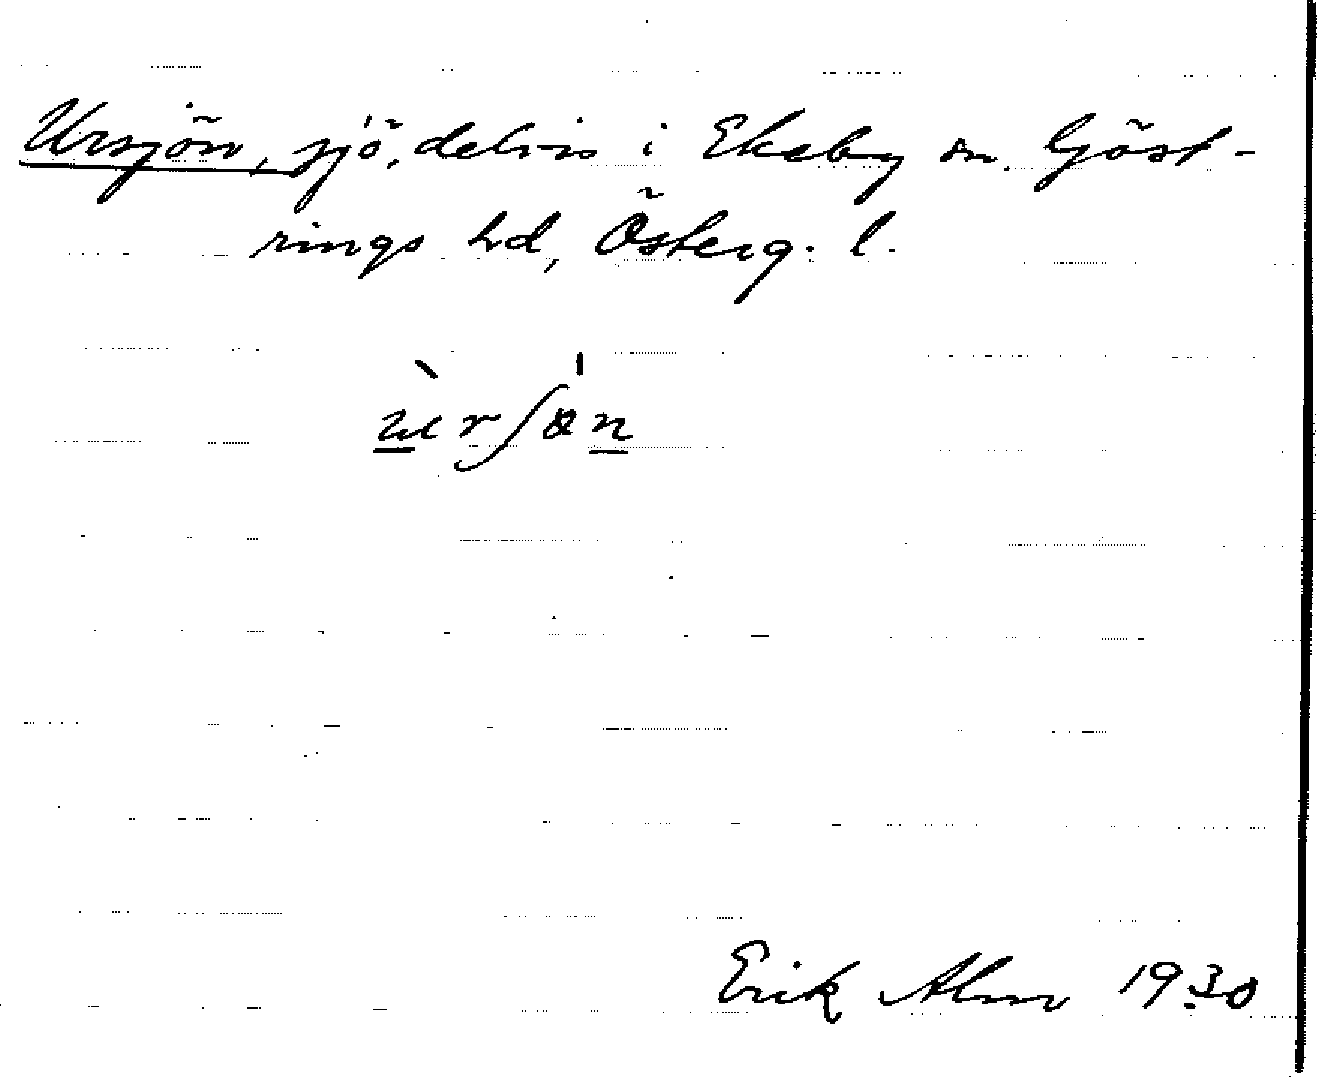 Ursjön, sjö, delvis i Ekeby sn. Göst-
rings hd, Österg. l.
ùrʃø̍n
Erik Alm 1930